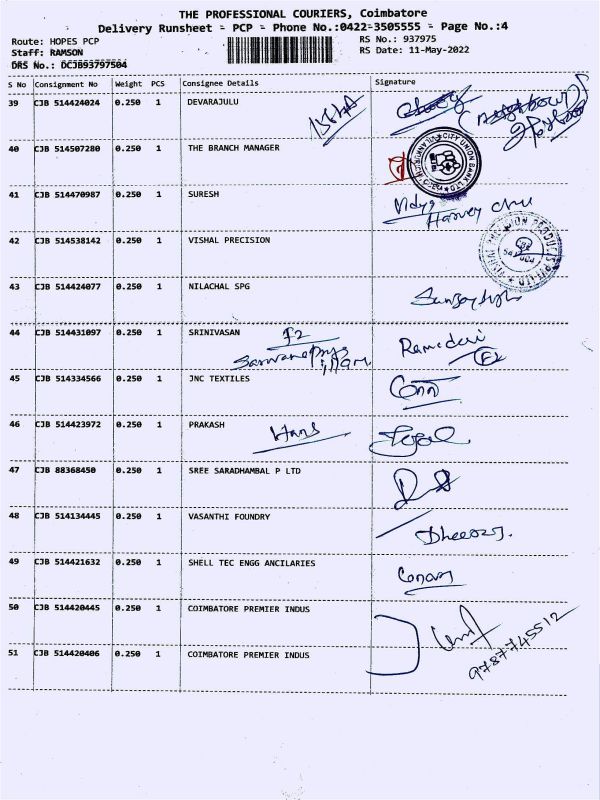 THE PROFESSIONAL COURIERS, Coimbatore
Delivery Runsheet - PCP - Phone No.:0422-3505555 - Page No.:4
Route: HOPES PCP RS No.: 937975
Staff: RAMSON RS Date: 11-May-2022
DRS No.: DCJB93797504
S No Consignment No Weight PCS Consignee Details Signature
39 CJB 514424024 0.250 1 DEVARAJULU
40 CJB 514507280 0.250 1 THE BRANCH MANAGER
CITY UNION BANK LTD
41 CJB 514470987 0.250 1 SURESH
42 CJB 514538142 0.250 1 VISHAL PRECISION
43 CJB 514424077 0.250 1 NILACHAL SPG
44 CJB 514431097 0.250 1 SRINIVASAN F2 Ramadevi
F2
45 CJB 514334566 0.250 1 JNC TEXTILES
46 CJB 514423972 0.250 1 PRAKASH
47 CJB 88368450 0.250 1 SREE SARADHAMBAL P LTD
48 CJB 514134445 0.250 1 VASANTHI FOUNDRY
49 CJB 514421632 0.250 1 SHELL TEC ENGG ANCILARIES
50 CJB 514420445 0.250 1 COIMBATORE PREMIER INDUS
9787745512
51 CJB 514420406 0.250 1 COIMBATORE PREMIER INDUS